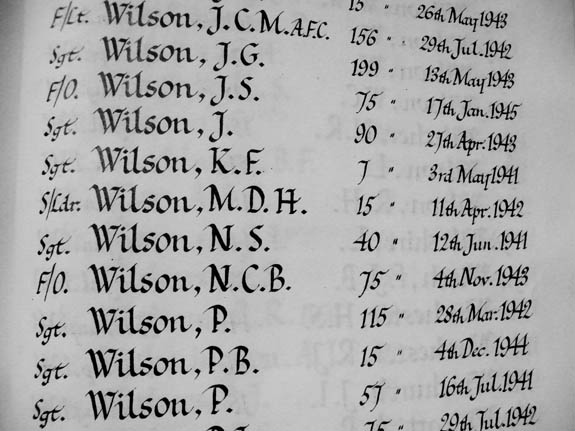 15 " 26th May 1943
F/Lt. Wilson, J.C.M. A.F.C. 156 " 29th Jul. 1942
Sgt. Wilson, J.G. 199 " 13th May 1943
F/O. Wilson, J.S. 75 " 17th Jan. 1945
Sgt. Wilson, J. 90 " 27th Apr. 1943
Sgt. Wilson, K.F. 7 " 3rd May 1941
S/Ldr. Wilson, M.D.H. 15 " 11th Apr. 1942
Sgt. Wilson, N.S. 40 " 12th Jun. 1941
F/O. Wilson, N.C.B. 75 " 4th Nov. 1943
Sgt. Wilson, P. 115 " 28th Mar. 1942
Sgt. Wilson, P.B. 15 " 4th Dec. 1944
Sgt. Wilson, P. 57 " 16th Jul. 1941
75 " 29th Jul. 1942